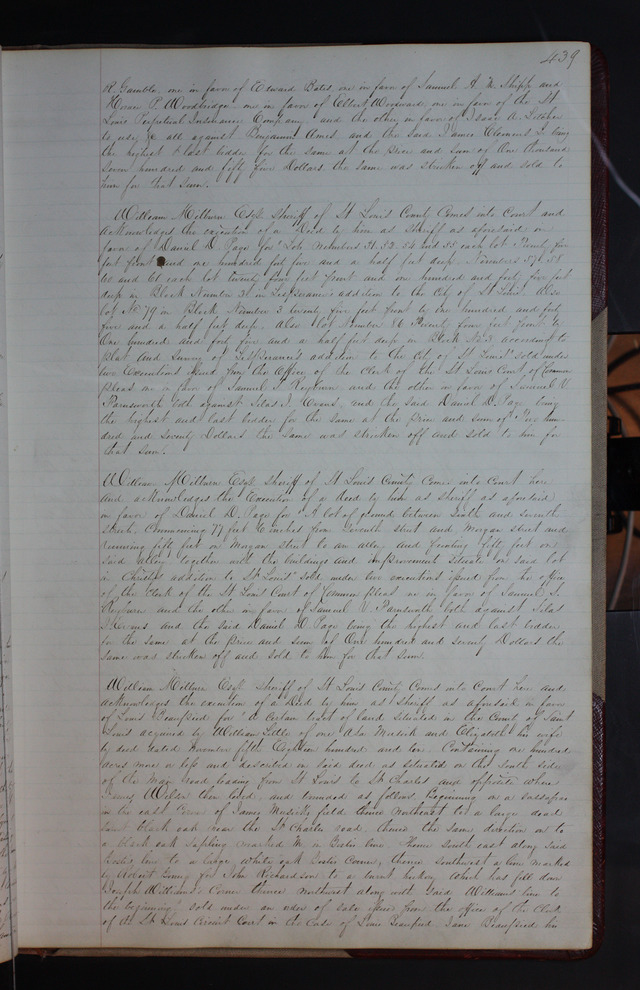 439
R. Gamble, one in favor of Edward Bates one in favor of Samuel A. M. Shipp and
P. Woodbridge one in favor of Woodward one in favor of the St
Louis Perpetual Insurance Company and the other in favor of Isaac A. Letcher
to use &c all against Benjamin Ames and the said James Clemens Jr being
the highest & last bidder for the same at the price and sum of One thousand
Seven hundred and fifty five Dollars the same was stricken off and sold to
him for that Sum.
William Milburn Esqr. Sheriff of St Louis County Comes into Court and
acknowledges the execution of a Deed by him as Sheriff as aforesaid in
favor of Daniel D. Page for "Lots Numbers 31. 33. 54 and 55 each lot Twenty five
feet front and one hundred forty five and a half feet deep. Numbers 57. 58
and 61 each lot twenty four feet front and one hundred and forty five feet
deep in Block Number in addition to the City of St Louis. Also
lot No 79 in Block Number 3 twenty five feet front by one hundred and forty
five and a half feet deep. Also lot Number 86 Twenty four feet front by
One hundred and forty five and a half feet deep in Block No 3 according to
plat and Survey of addition to the City of St Louis" sold under
two Executions issued from the Office of the Clerk of the St Louis Court of Common
pleas one in favor of Samuel S. Rayburn and the other in favor of Samuel V.
Farnsworth both against Silas and the said Daniel D. Page being
the highest and last bidder for the same at the price and sum of hun-
dred and Seventy Dollars the Same was stricken off and sold to him for
that Sum.
William Milburn Esqr. Sheriff of St Louis County Comes into Court here
and acknowledges the Execution of a Deed by him as Sheriff as aforesaid
in favor of Daniel D. Page for "A lot of Ground between Sixth and Seventh
Streets. Commencing 77 feet 6 inches from Seventh Street and Morgan Street and
running fifty feet on Morgan Street to an alley and fronting fifty feet on
said alley together with the buildings and Improvement Situate on said lot
in Christy's addition to St Louis" sold under two executions issued from the office
of the Clerk of the St Louis Court of Common pleas one in favor of Samuel S.
Rayburn and the other in favor of Samuel V. Farnsworth both against Silas
and the said Daniel D. Page being the highest and last bidder
for the same at the price and Sum of One hundred and Seventy Dollars the
same was stricken off and sold to him for that Sum.
William Milburn Esqr. Sheriff of St Louis County Comes into Court here and
acknowledges the execution of a Deed by him as Sheriff as aforesaid in favor
of Louis for "A Certain tract of land Situated in the County of Saint
Louis acquired by William of one Musick and Elizabeth his wife
by deed dated November fifth Eighteen hundred and ten. Containing one hundred
acres more or less and described in Said deed as situated on the South side
of the Main Road leading from St Louis to St Charles and opposite where
James Wilson then lived and bounded as follows. Beginning on a sassafras
in the east corner of James Musicks field thence Northeast to a large dead
black oak near the St Charles road, thence the same direction on to
a black oak Sapling marked M in line. Thence South east along Said
line to a large white oak Corner, thence Southwest a line marked
by Robert for John Richardson to a burnt hickory which has fell down
Joseph Williams's Corner thence Northwest along with Said Williams line to
the beginning" sold under an order of sale issued from the office of the Clerk
of the St Louis Circuit Court in the case of Jane his